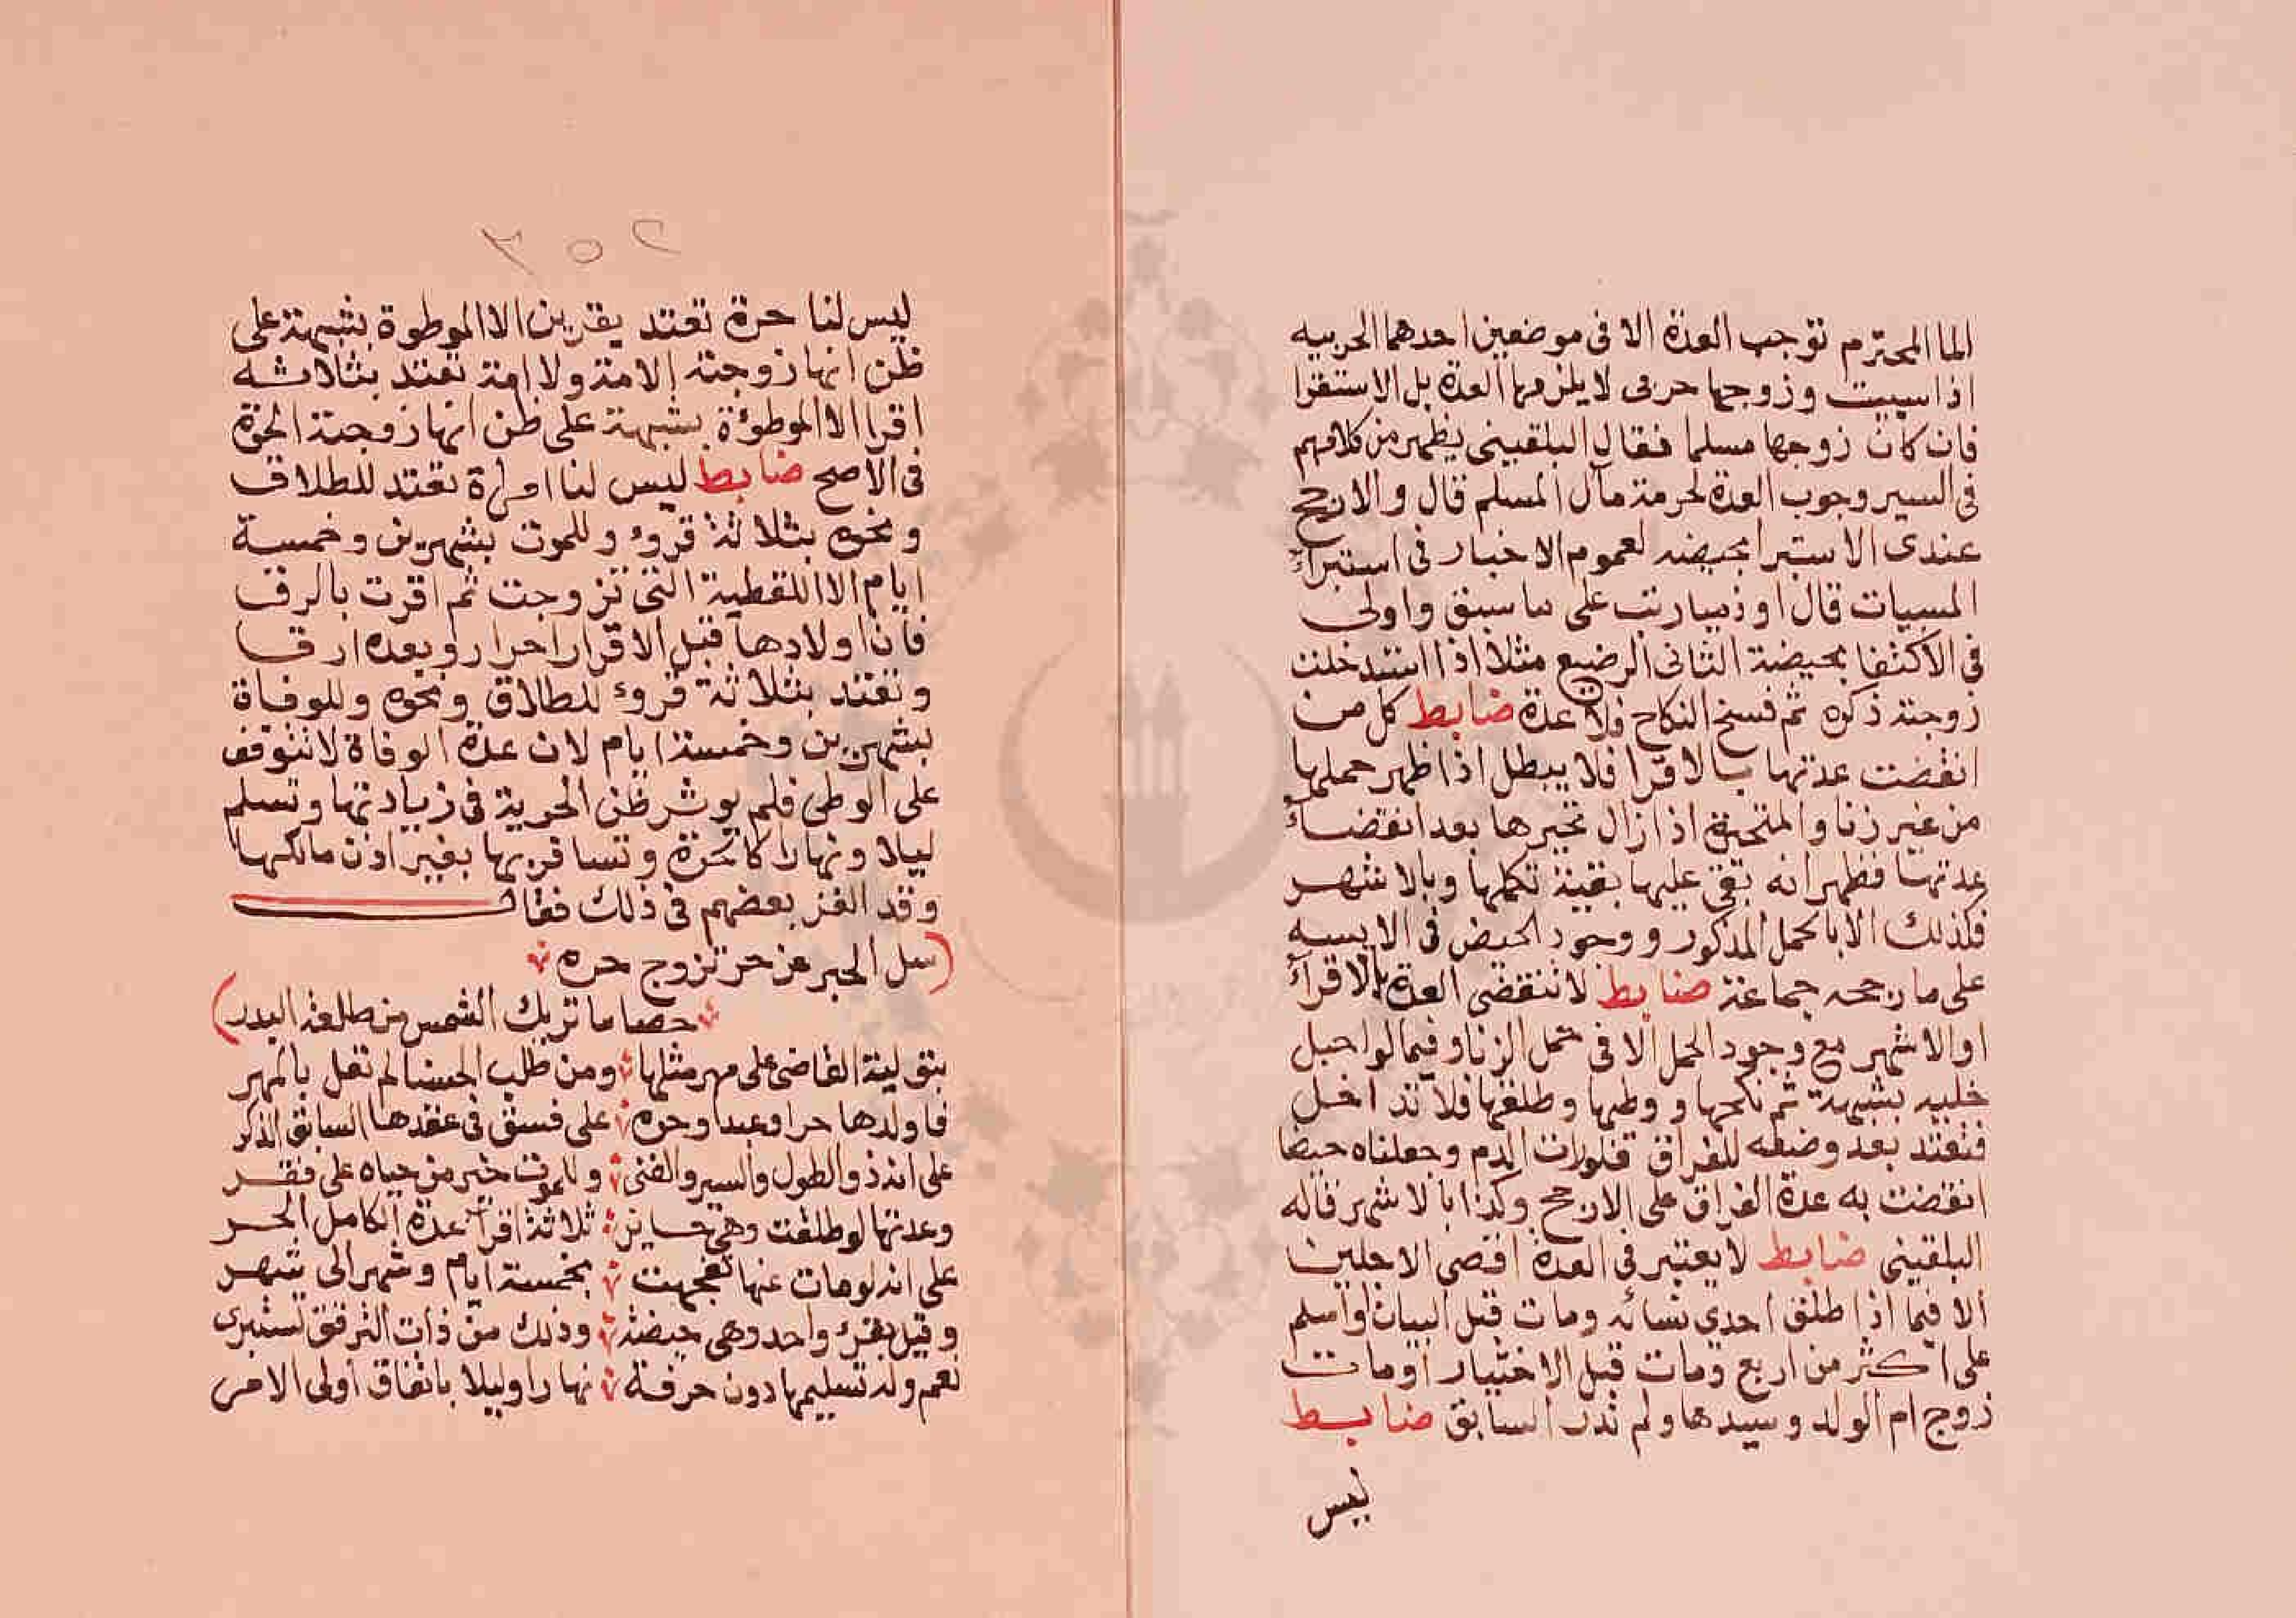 الما المحترم توجب العدة الا فى موضعين احدهما الحربيه
اذا سبيت وزوجها حربى لا يلزمها العدة بل الاستقرا
فان كان زوجها مسلما فقال البلقينى يظهر من كلامهم
فى السير وجوب العدة لحرمة مآل المسلم قال والارجح
عندى الاستبرا بحيضه لعموم الاخبار فى استبراء
المسبيات قال او زيادتى على ما سبق واولى
فى الاكتفا بحيضة الثانى الرضيع مثلا اذا استدخلت
زوجته ذكره ثم فسخ النكاح فلا عدة ضابط كل من
انقضت عدتها بالاقرا فلا يبطل اذا ظهر حملها
من غير زنا والمتحيرة اذا زال تحيرها بعد انقضاء
عدتها فظهر انه بقى عليها بقية تكملها وبالاشهر
فكذلك الا بالحمل المذكور ووجود الحيض فى الايسه
على ما رجحه جماعة ضابط لا تنقضى العدة بالاقراء
او الاشهر مع وجود الحمل الا فى حمل الزنا وفيما لو احبل
خليه بشبهة ثم نكحها ووطيها وطلقها فلا تداخل
فتعتد بعد وضعه للفراق فلو رات الدم وجعلناه حيضا
انقضت به عدة الفراق على الارجح وكذا بالاشهر قاله
البلقينى ضابط لا يعتبر فى العدة اقصى الاجلين
الا فيما اذا طلق احدى نسائه ومات قبل البيان او اسلم
على اكثر من اربع ومات قبل الاختيار او مات
زوج ام الولد وسيدها ولم تدر السابق ضابط
ليس
٢٥٣
ليس لنا حرة تعتد بقرين الا الموطوة بشبهة على
ظن انها زوجته الامة ولا امة تعتد بثلاثه
اقرا الا الموطؤة بشبهة على ظن انها زوجته الحرة
فى الاصح ضابط ليس لنا امراة تعتد للطلاق
ونحوه بثلاثة قروء وللموت بشهرين وخمسة
ايام الا اللقطية التى تزوجت ثم اقرت بالرق
فان اولادها قبل الاقرار احرار وبعده ارقا
وتعتد بثلاثة قروء للطلاق ونحوه وللوفاة
بشهرين وخمسة ايام لان عدة الوفاة لا تتوقف
على الوطى فلم يوثر ظن الحرية فى زيادتها وتسلم
ليلا ونهارا كالحرة وتسافر بها بغير اذن مالكها
وقد الغز بعضهم فى ذلك فقال
سل الحبر عن حر تزوج حره
حصاما تريك الشمس من طلعة البدر
بتولية القاضى على مهر مثلها ومن طلب الحسنا لم تغل بالمهر
فاولدها حرا وعبدا وحره على فسق فى عقدها السابق الذكر
على انه ذو الطول واليسر والغنى وللموت خير من حياه على فقر
وعدتها لو طلقت وهى حايل ثلاثة اقراء عدة الكامل الحر
على انه لو مات عنها تفجعت بخمسة ايام وشهر الى شهر
وقيل بقرء واحد وهى حيضة وذلك من ذات الترقق تستبرى
نعم وله تسليمها دون حرفة نهارا وليلا باتفاق اولى الامر